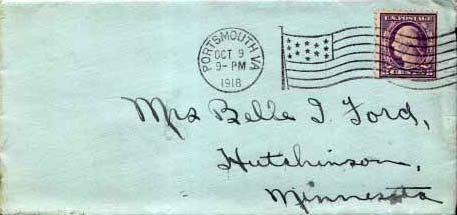 PORTSMOUTH, VA
OCT 9
9-PM
1918
U.S. POSTAGE
3 CENTS 3
Mrs Belle I. Ford,
Hutchinson,
Minnesota